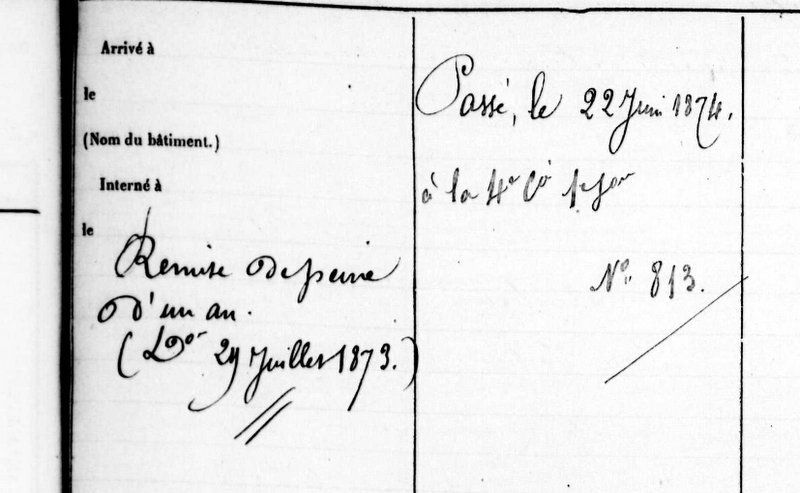 Arrivé à
le
(Nom du bâtiment.)
Interné à
le
Remise de peine
d'un an.
(Don 29 Juillet 1873.)
Passé, le 22 Juin 1874.
à la 4e Cie
No. 813.